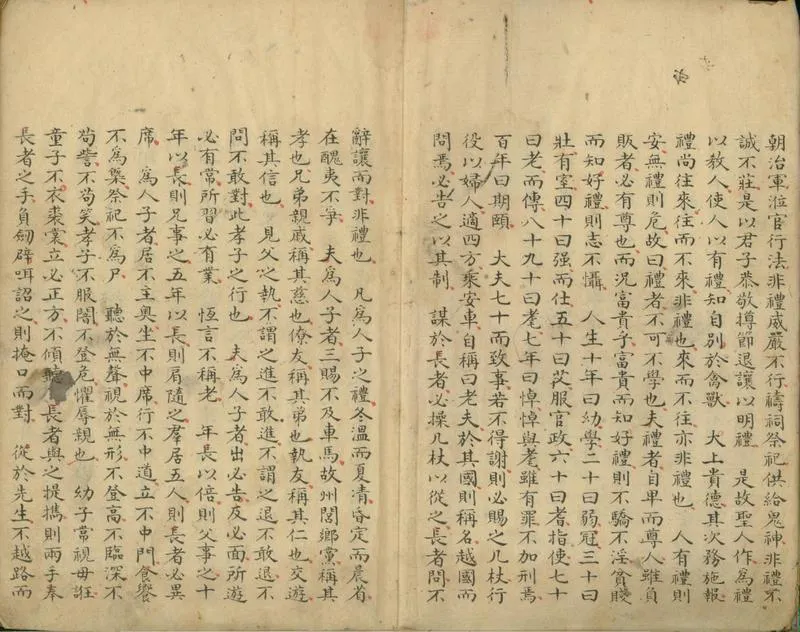 朝治軍涖官行法非禮威嚴不行禱祠祭祀供給鬼神非禮不
誠不莊是以君子恭敬撙節退讓以明禮 是故聖人作爲禮
以教人使人以有禮知自別於禽獸 大上貴德其次務施報
禮尚往來往而不來非禮也來而不往亦非禮也 人有禮則
安無禮則危故曰禮者不可不學也夫禮者自卑而尊人雖負
販者必有尊也而況富貴乎富貴而知好禮則不驕不淫貧賤
而知好禮則志不懾 人生十年曰幼學二十曰弱冠三十曰
壯有室四十曰强而仕五十曰艾服官政六十曰耆指使七十
曰老而傳八十九十曰耄七年曰悼悼與耄雖有罪不加刑焉
百年曰期頤 大夫七十而致事若不得謝則必賜之几杖行
役以婦人適四方乘安車自稱曰老夫於其國則稱名越國而
問焉必告之以其制 謀於長者必操几杖以從之長者問不
辭讓而對非禮也 凡爲人子之禮冬溫而夏凊昏定而晨省
在醜夷不爭 夫爲人子者三賜不及車馬故州閭鄉黨稱其
孝也兄弟親戚稱其慈也僚友稱其弟也執友稱其仁也交遊
稱其信也 見父之執不謂之進不敢進不謂之退不敢退不
問不敢對此孝子之行也 夫爲人子者出必告反必面所遊
必有常所習必有業 恆言不稱老 年長以倍則父事之十
年以長則兄事之五年以長則肩隨之羣居五人則長者必異
席 爲人子者居不主奧坐不中席行不中道立不中門食饗
不爲槩祭祀不爲尸 聽於無聲視於無形不登高不臨深不
苟訾不苟笑孝子不服闇不登危懼辱親也 幼子常視毋誑
童子不衣裘裳立必正方不傾聽長者與之提攜則兩手奉
長者之手負劒辟咡詔之則掩口而對 從於先生不越路而